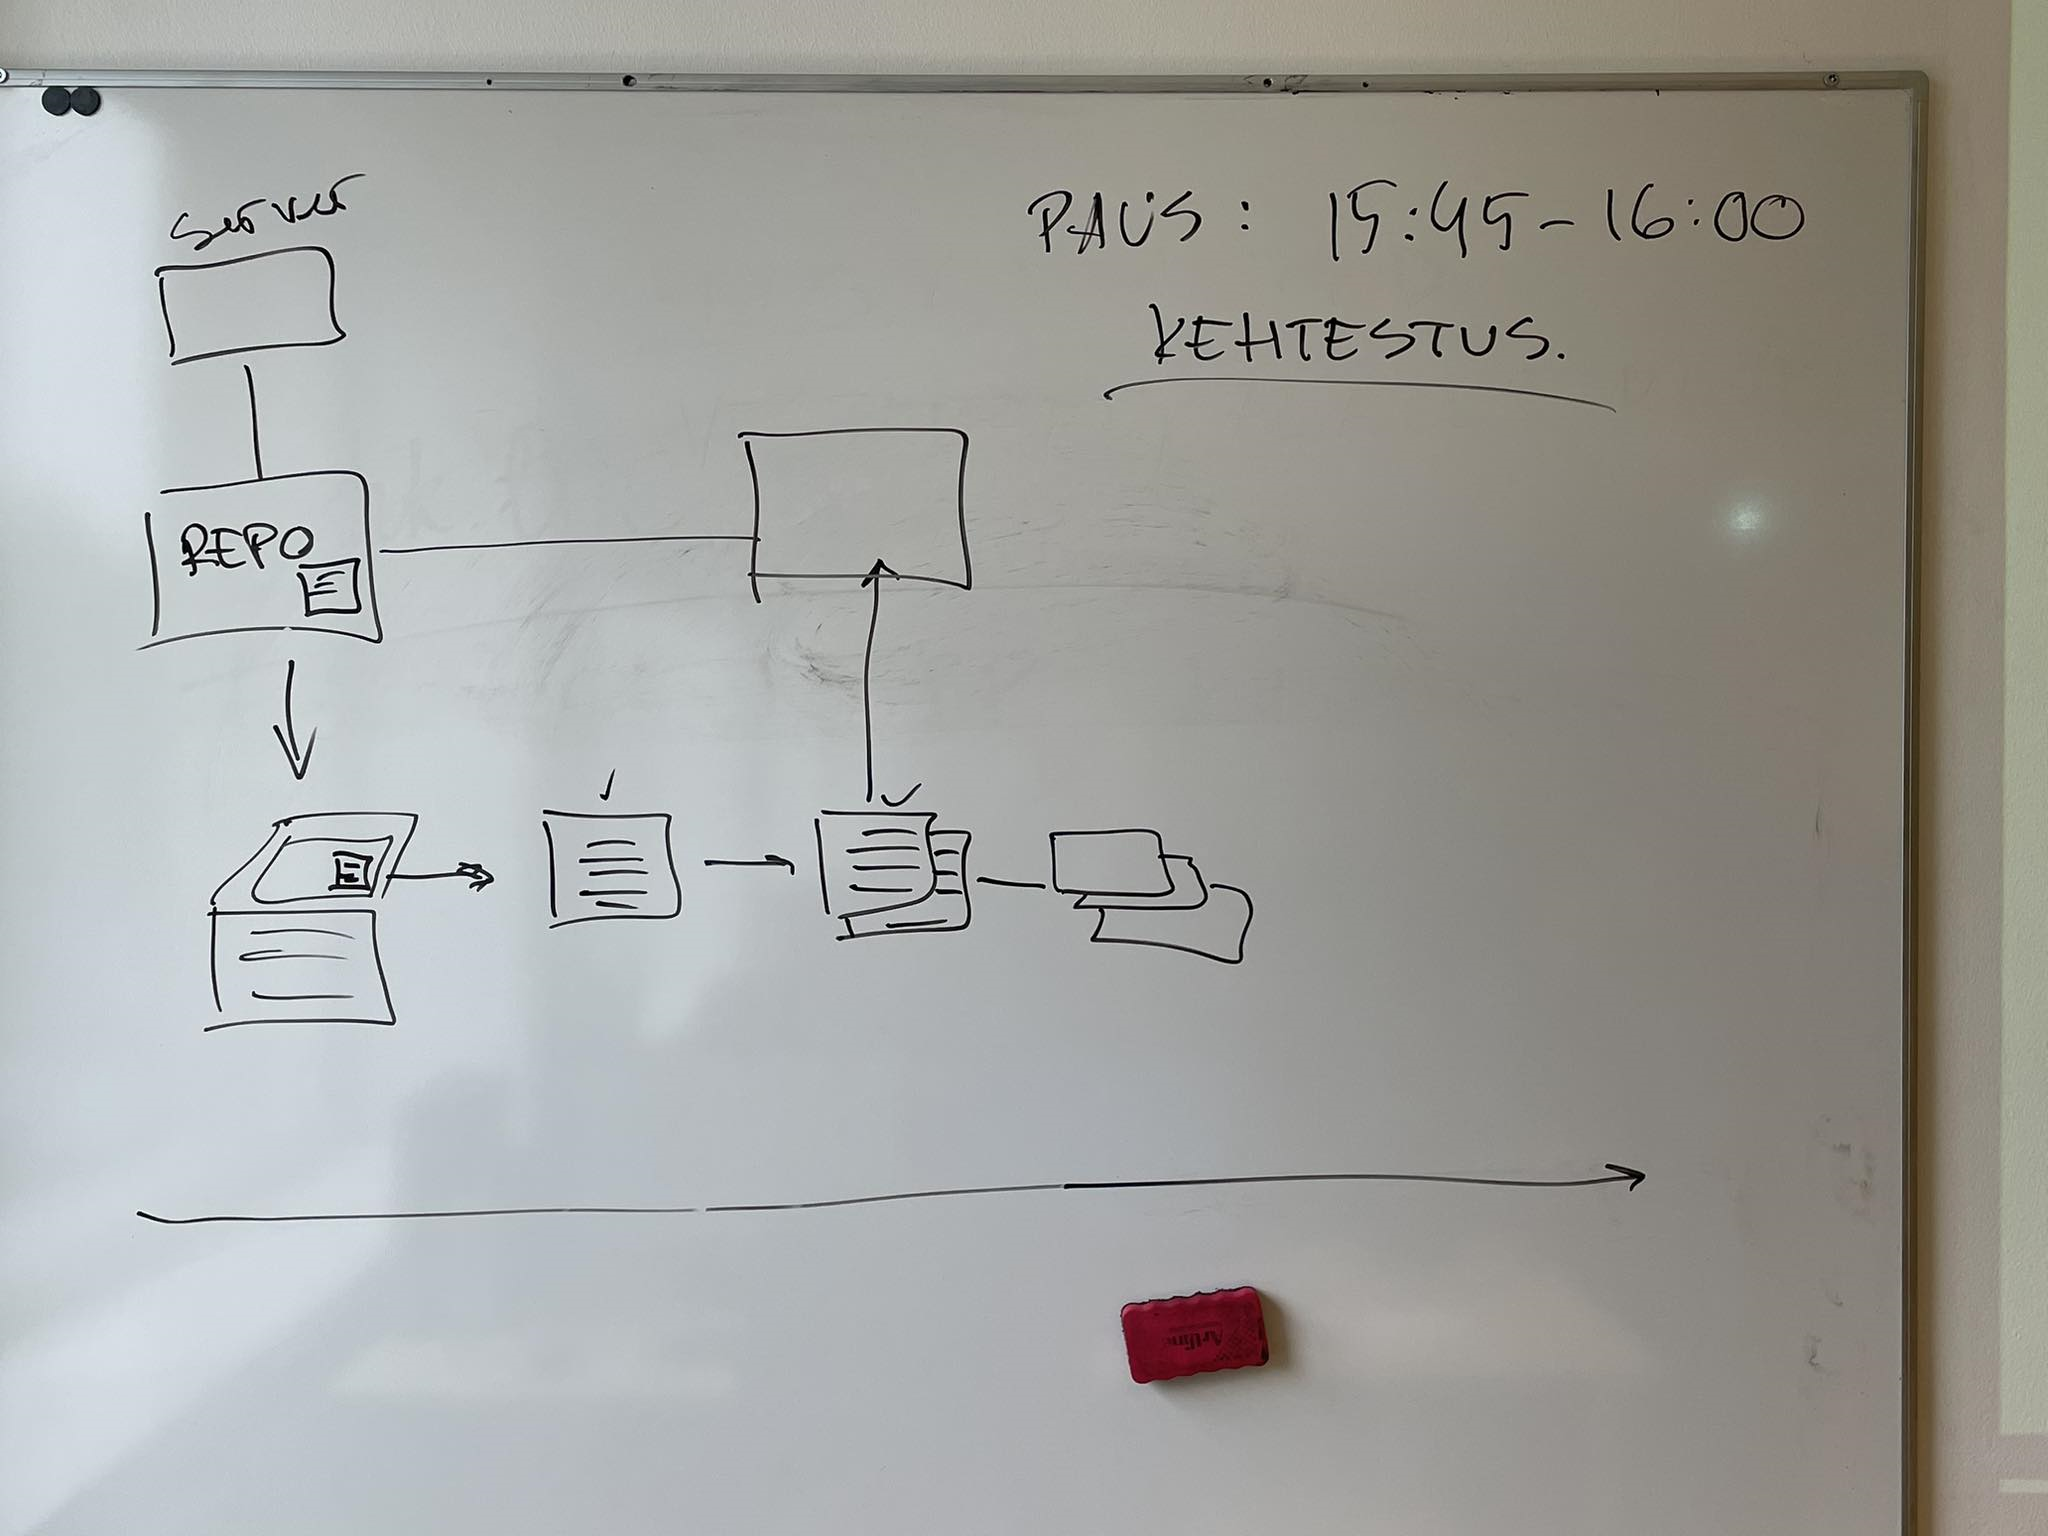 Server
PAUS: 15:45-16:00
KEHTESTUS.
REPO